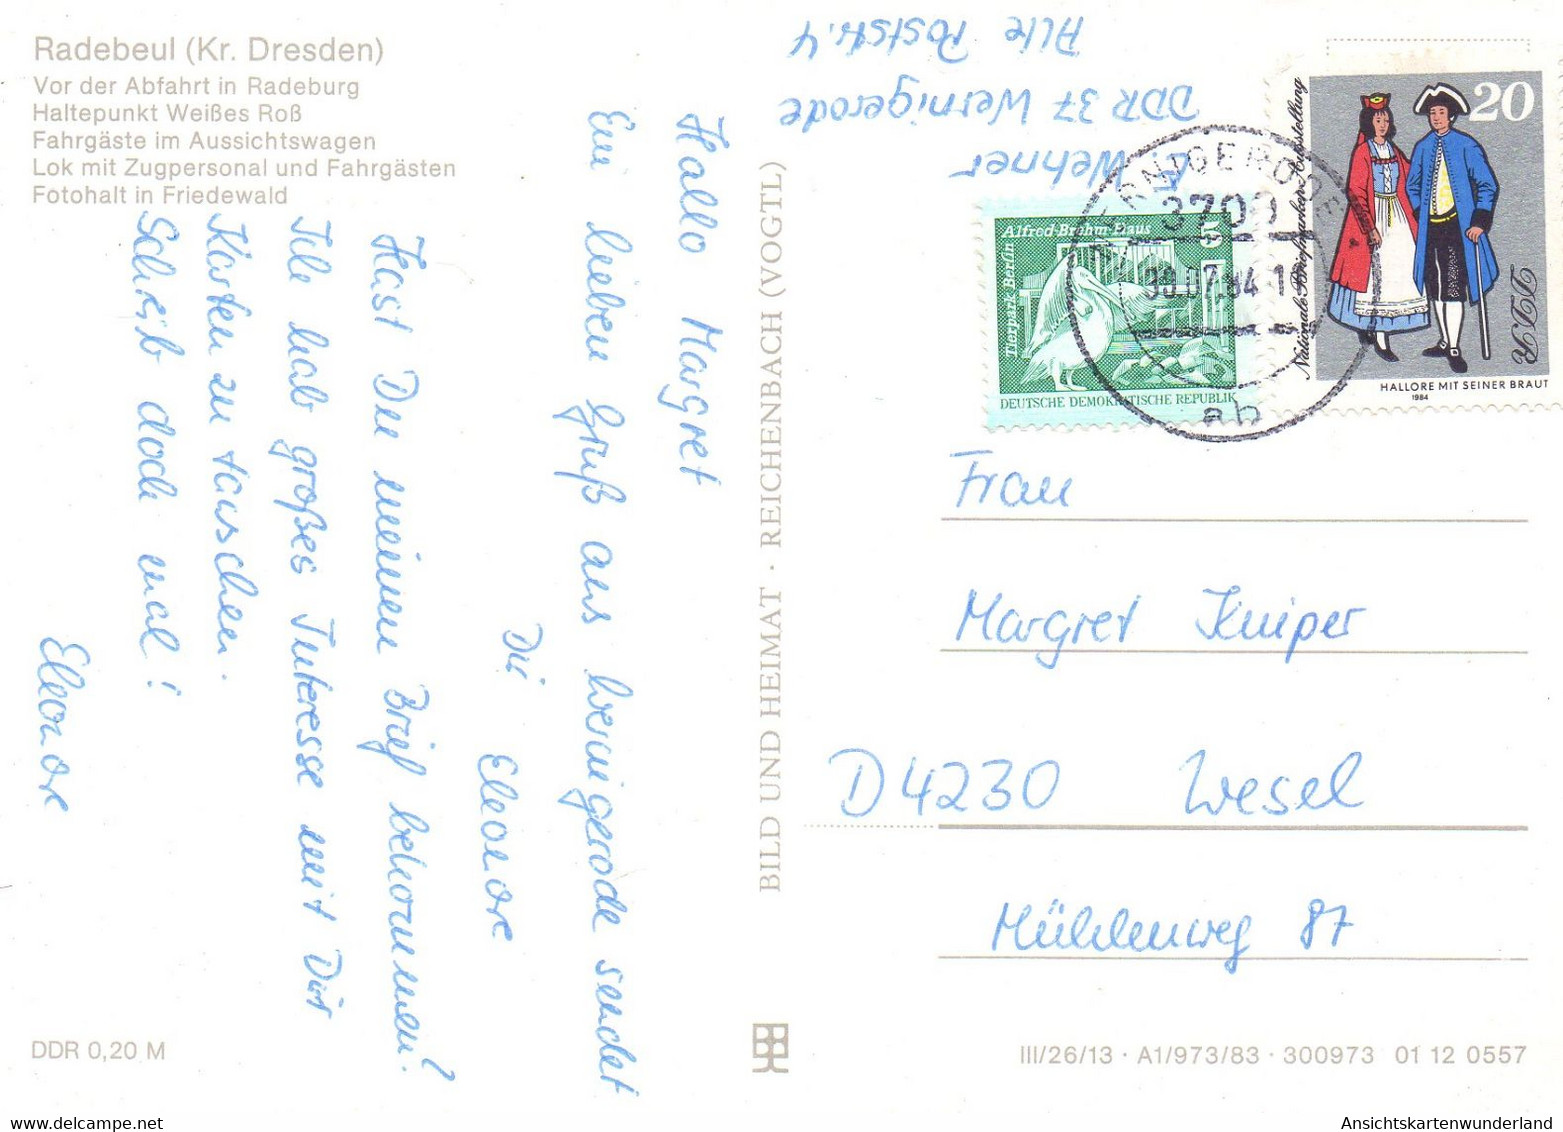 Radebeul (Kr. Dresden)
Vor der Abfahrt in Radeburg
Haltepunkt Weißes Roß
Fahrgäste im Aussichtswagen
Lok mit Zugpersonal und Fahrgästen
Fotohalt in Friedewald
Hallo Margret
Ein lieben Gruß aus Wernigerode sendet
Dir Eleonore
Hast Du meinen Brief bekommen?
Ich hab großes Interesse mit Dir
Karten zu tauschen.
Schreib doch mal!
Eleonore
DDR 0,20 M
BILD UND HEIMAT · REICHENBACH (VOGTL)
E. Wehner
DDR 37 Wernigerode
Alte Poststr. 4
Alfred-Brehm-Haus
5
Tierpark Berlin
DEUTSCHE DEMOKRATISCHE REPUBLIK
WERNIGERODE
3700
30.07.84 1
ab
Nationale Briefmarken-Ausstellung
20
DDR
HALLORE MIT SEINER BRAUT
1984
Frau
Margret Kniper
D 4230 Wesel
Mühlenweg 87
III/26/13 · A1/973/83 · 300973 01 12 0557
Ansichtskartenwunderland